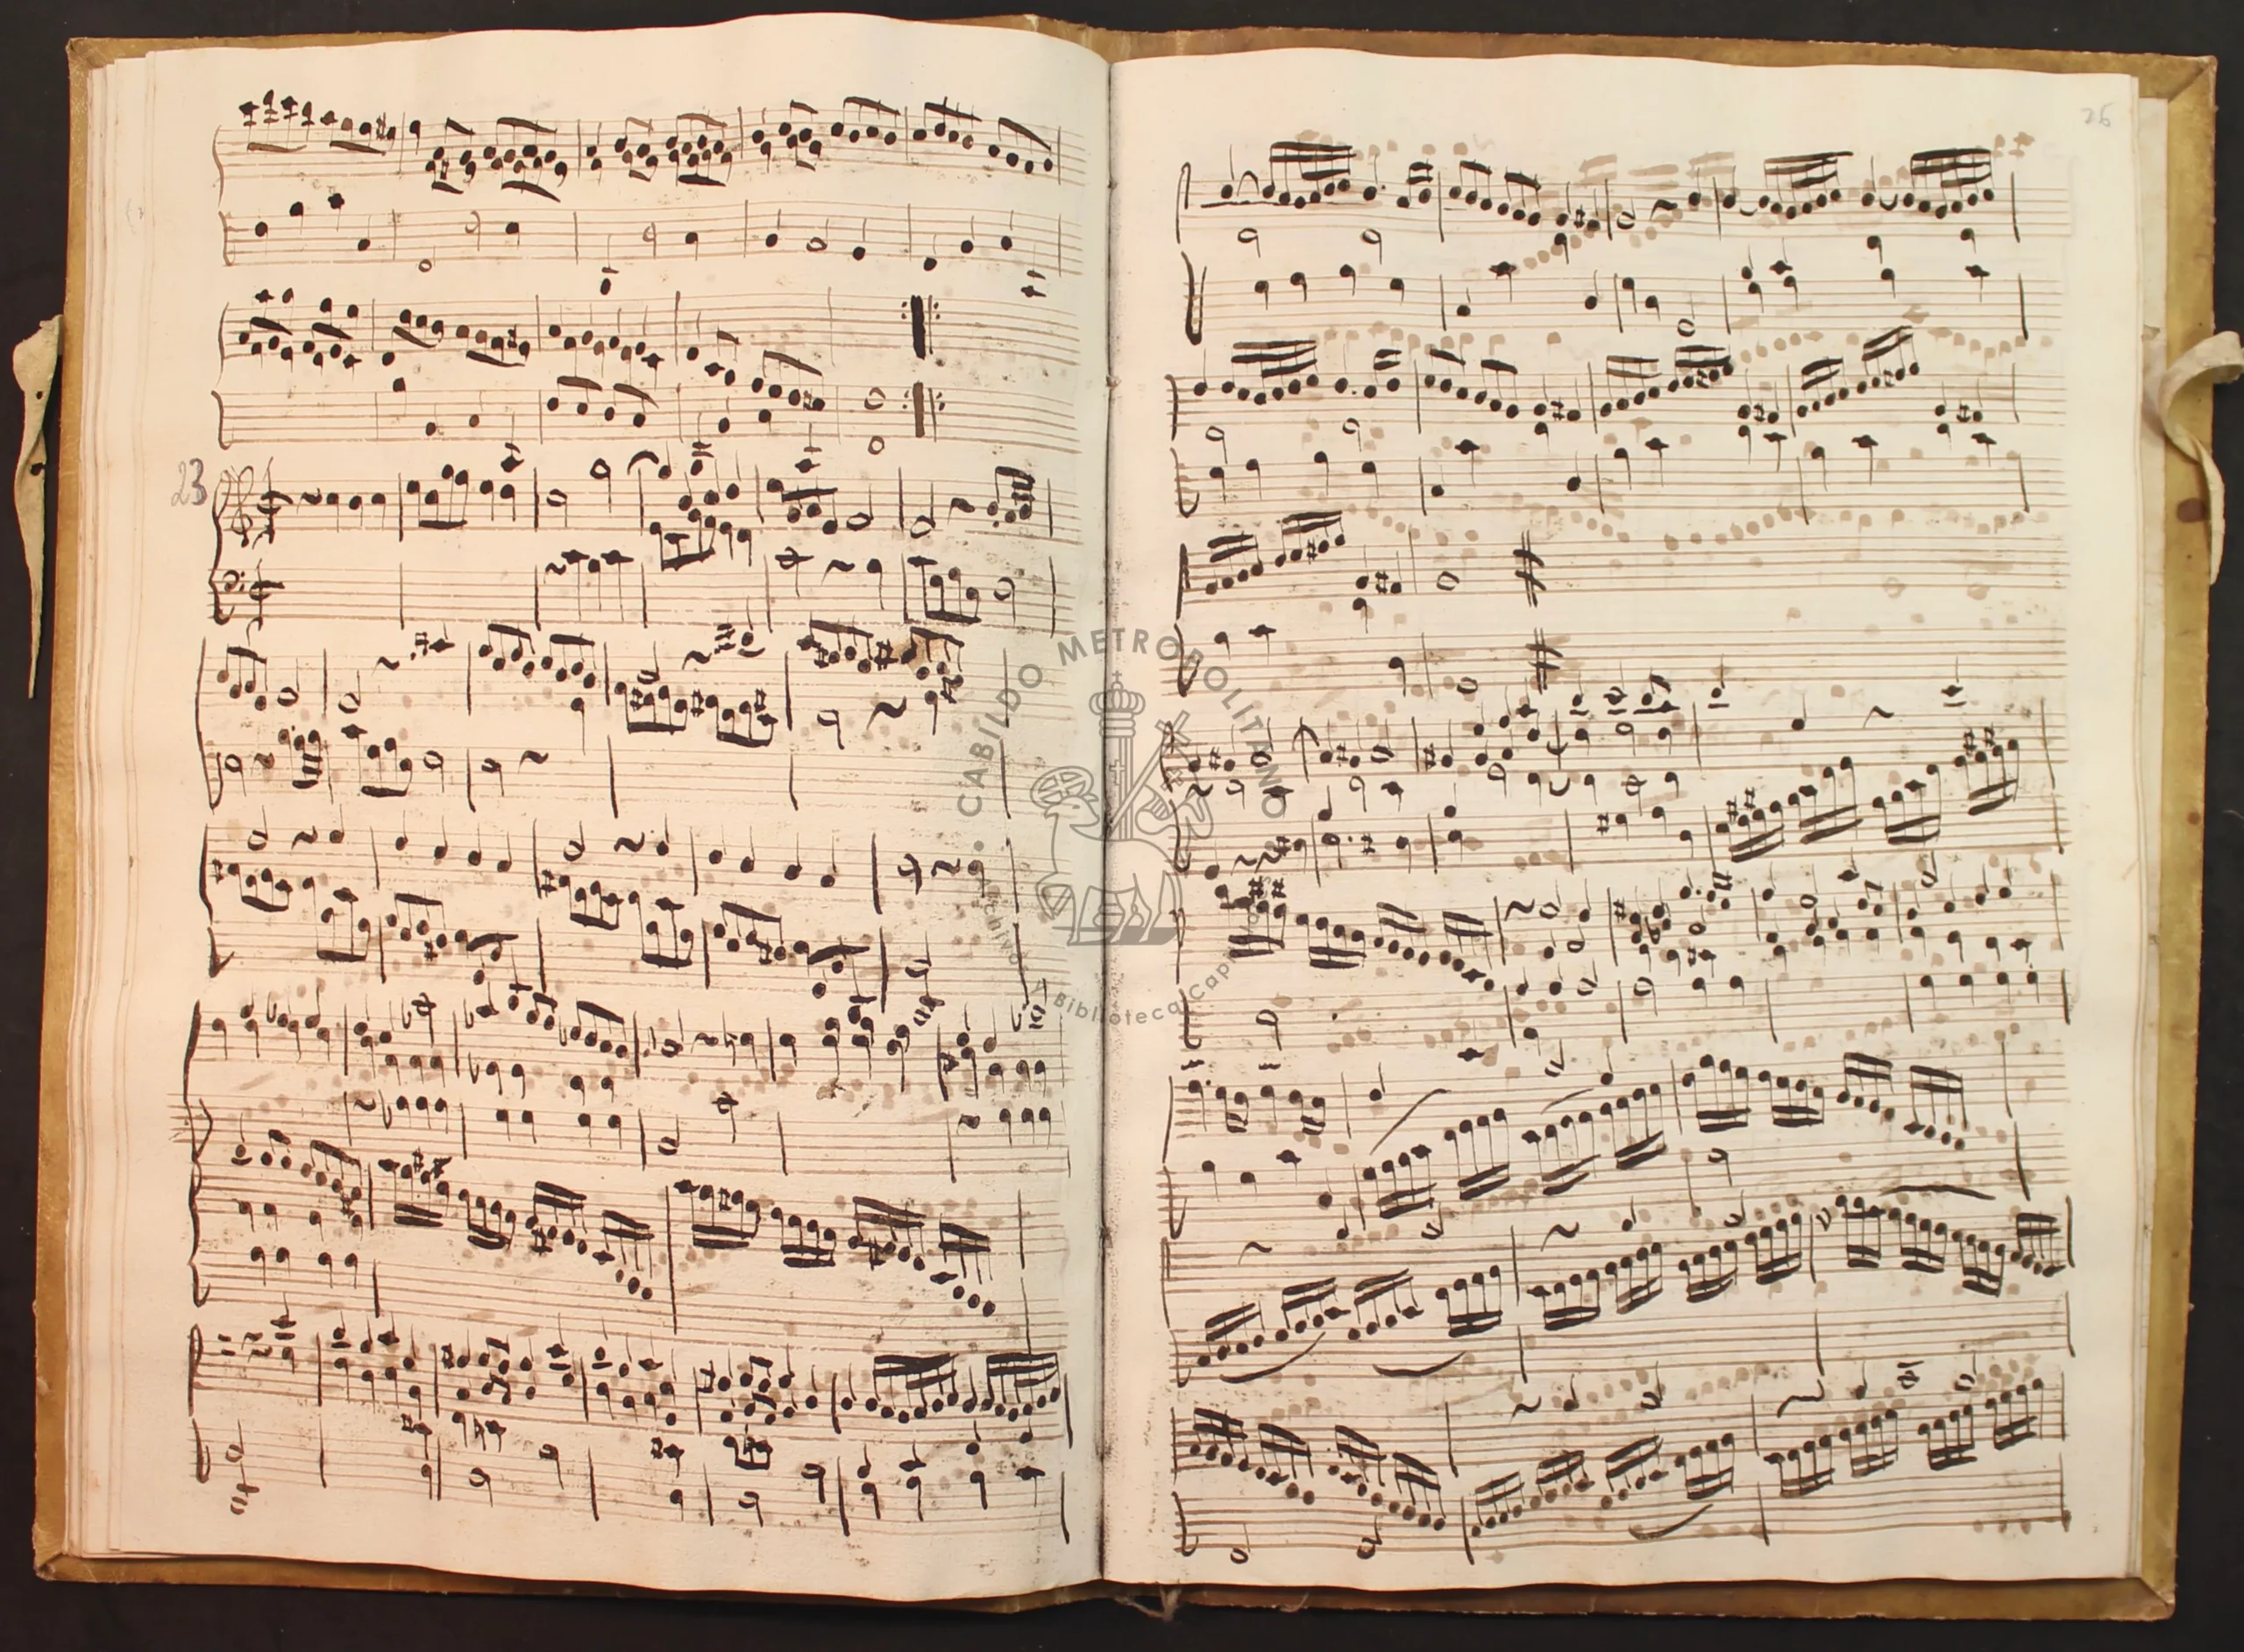 23
26
CABILDO METROPOLITANO
Archivo - Biblioteca Capitular